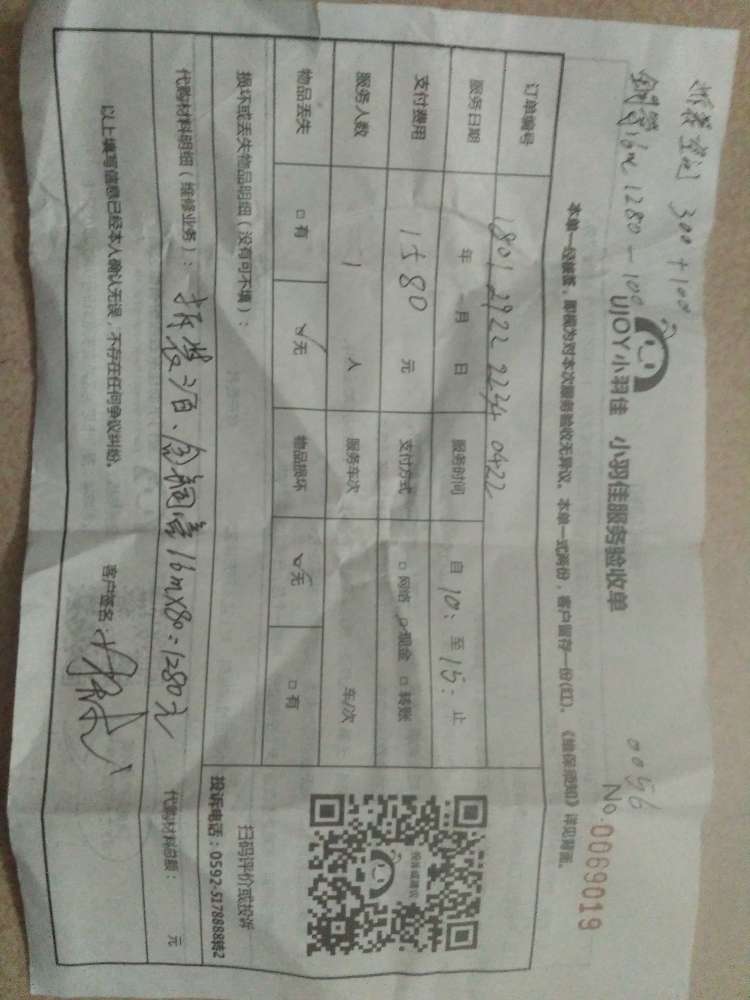 拆装空调 300+100
铜管16m 1280-100
0056
UJOY小羽佳 小羽佳服务验收单
No 0069019
本单一经签署,即视为对本次服务验收无异议。本单一式两份,客户留存一份(红)。《维保须知》详见背面。
订单编号 1801 2922 2234 0422
服务日期 年 月 日 服务时间 自 10: 至 15: 止
支付费用 1580 元 支付方式 □网络 ☑现金 □转账
服务人数 1 人 服务车次 车/次
物品丢失 □有 ☑无 物品损坏 ☑无 □有
投诉或建议
扫码评价或投诉
投诉电话:0592-5178888转2
损坏或丢失物品明细(没有可不填):
代购材料明细(维修业务): 拆装 300、铜管16m×80=1280元
代购材料总额: 元
以上填写信息已经本人确认无误,不存在任何争议纠纷。 客户签名: